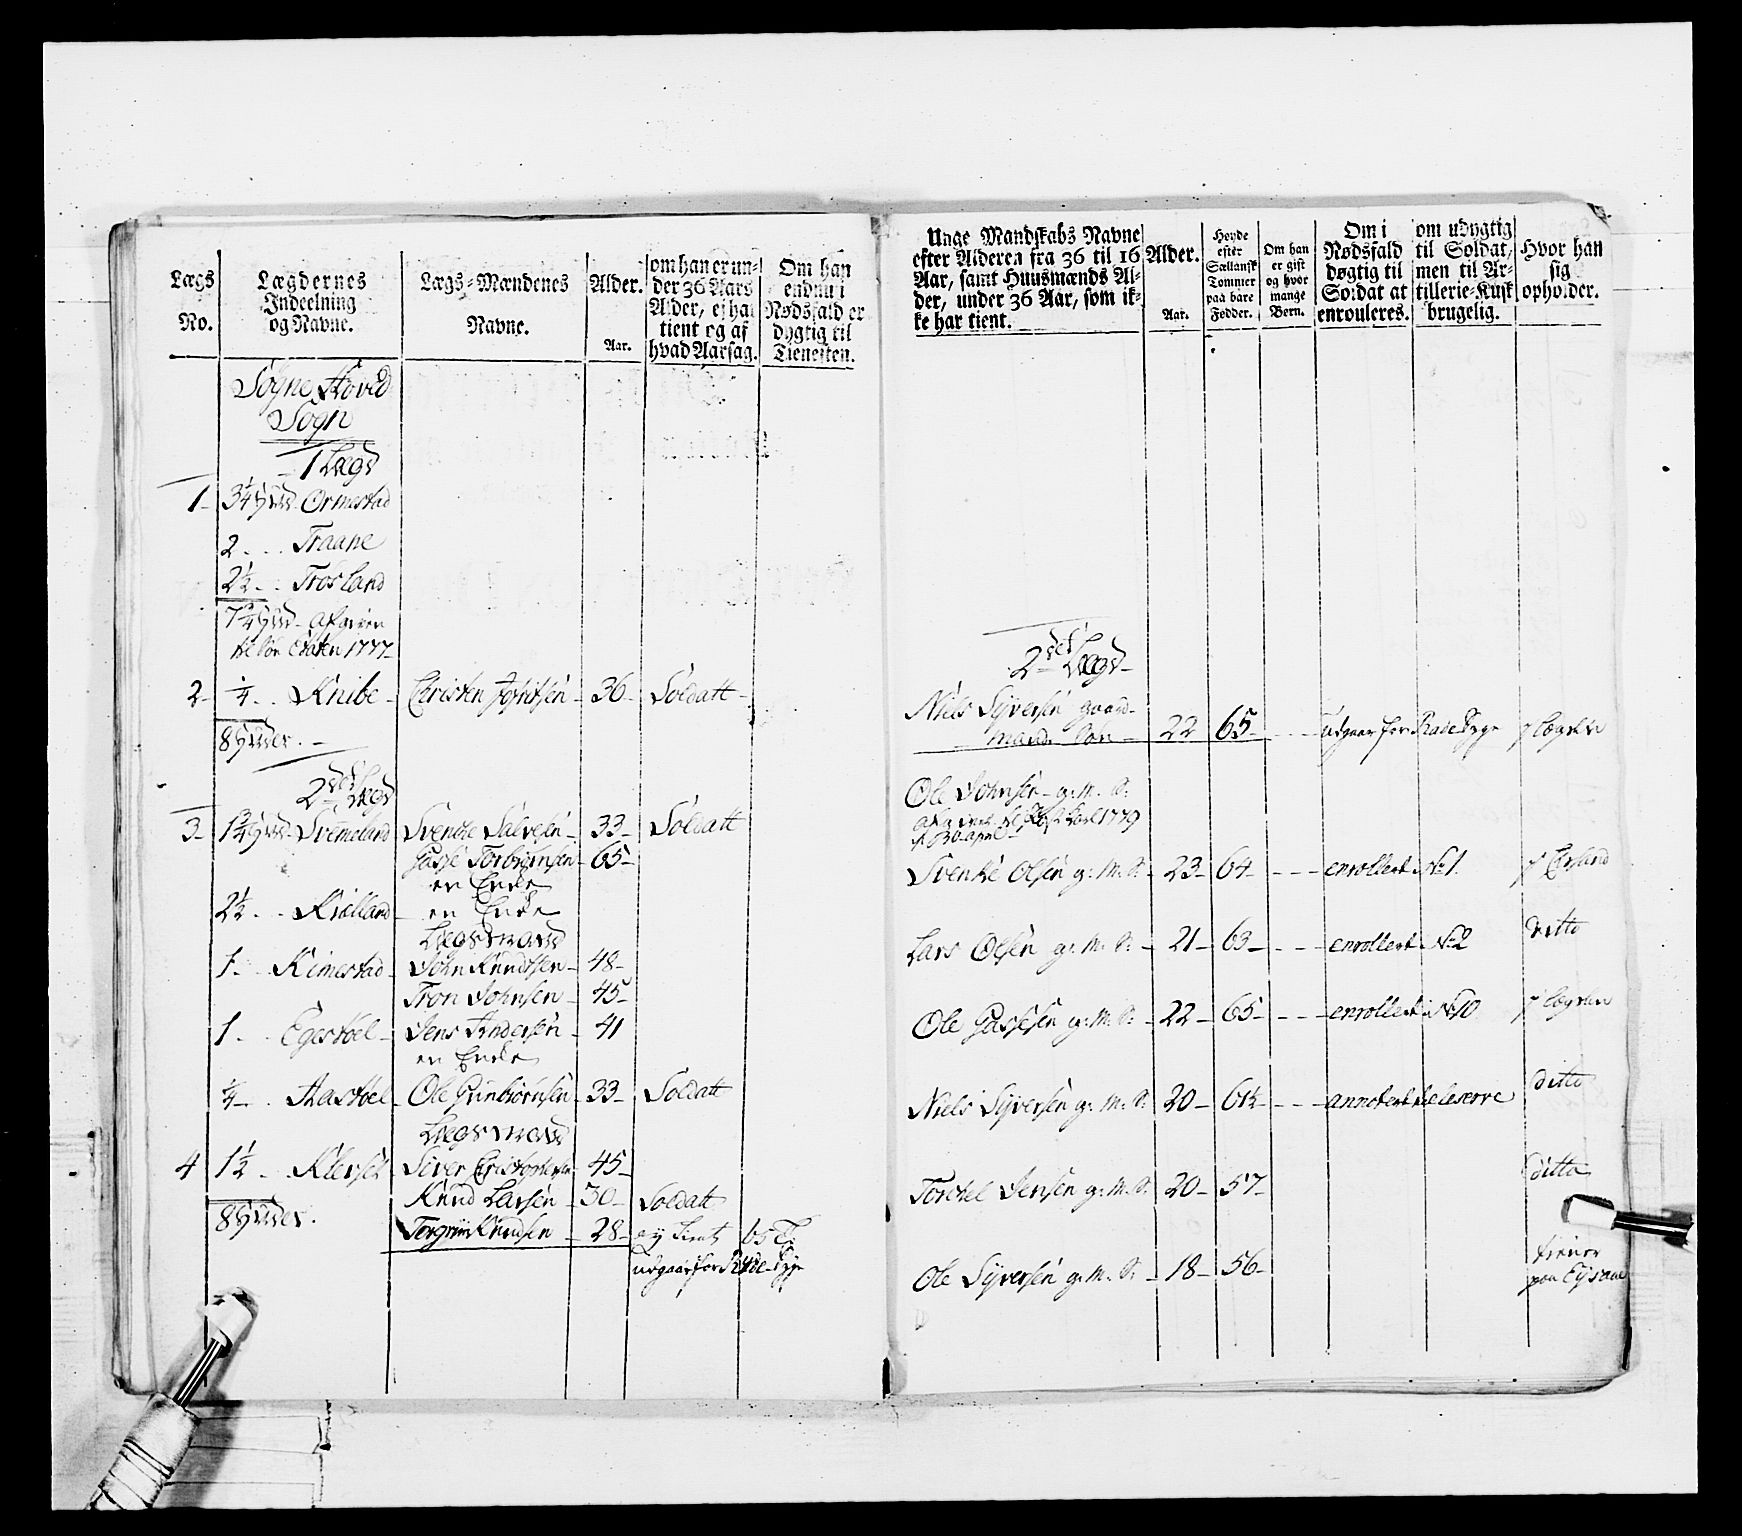 Lægs
No.
Lægdernes
Indeelning
og Navne.
Lægs-Mændenes
Navne.
Alder.
Aar.
om han er un-
der 36 Aars
Alder, ej ha
tient og af
hvad Aarsag.
Om han
endnu i
Nødsfald er
dygtig til
Tienesten.
Sogne Hoved
Sogn
1 Lægd
1 3¼ Huud Ormestad
2 Traane
2½ Trosland
7¾ Huud afgiven
1777
2 ¼ Knibe Christen 36 Soldatt
8 Huder.
2det Lægd
3 1¾ Huud Svenke Salvesen 33 Soldatt
Gasse Torbiørnsen 65
en Enke
2½ en Enke
Lægdsmand
1 Kimestad John Knudtsen 48
Tron Johnsen 45
1 Egestøel Jens Andersen 41
en Enke
¼ Aastøel Ole 33 Soldatt
Lægdsmand
4 1½ Siver 45
Knud Larsen 30 Soldatt
8 Huder.
Torgrim Knudsen 28 ey tient 65 T.
udgaar for
Unge Mandskabs Navne
efter Alderen fra 36 til 16
Aar, samt Huusmænds Al-
der, under 36 Aar, som ik-
ke har tient.
Alder.
Aar.
Høyde
efter
Sællansk
Tommer
paa bare
Fødder.
Om han
er gift
og hvor
mange
Børn.
Om i
Nødsfald
døgtig til
Soldat at
enrouleres.
om udygtig
til Soldat,
men til Ar-
tillerie-Kusk
brugelig.
Hvor han
sig
opholder.
2det Lægd
Niels Syversen gaard-
mands Søn 22 65 udgaar for
Ole Johnsen g: M. S:
1779
d. 30 april
Svenke Olsen g: M. S. 23 64 enrollert No. 1
Lars Olsen g: M. S: 21 63 enrollert No 2 ditto
Ole Gassesen g: M. S: 22 65 enrollert No 10
Niels Syversen g: M. S: 20 61½ annotert reserve ditto
Torchel Jensen g: M. S. 20 57 ditto
Ole Syversen g: M. S: 18 56 tiener
paa